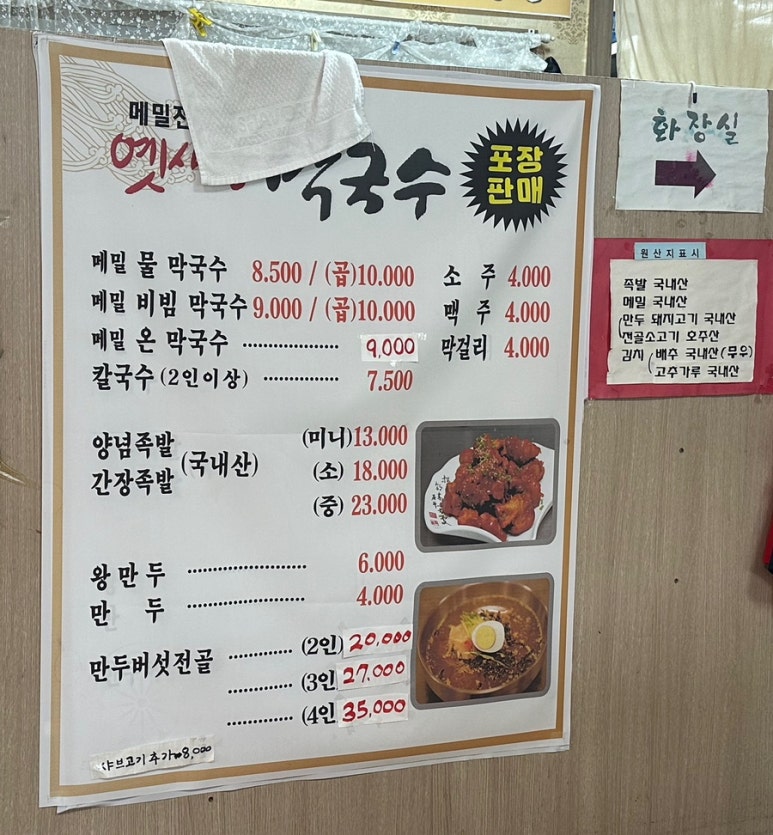 메밀전
옛
막국수
포장
판매
메밀 물 막국수 8.500 / (곱)10.000
메밀 비빔 막국수 9.000 / (곱)10.000
메밀 온 막국수 .................. 9,000
칼국수 (2인이상) .............. 7.500
소 주 4.000
맥 주 4.000
막걸리 4.000
양념족발
간장족발
(국내산)
(미니)13.000
(소) 18.000
(중) 23.000
왕만두 ...................... 6.000
만 두 ...................... 4.000
만두버섯전골 ............ (2인) 20,000
............ (3인 27,000
............ (4인 35,000
샤브고기추가₩8,000
화장실
원산지표시
족발 국내산
메밀 국내산
만두 돼지고기 국내산
전골소고기 호주산
김치 (배추 국내산(무우)
고추가루 국내산